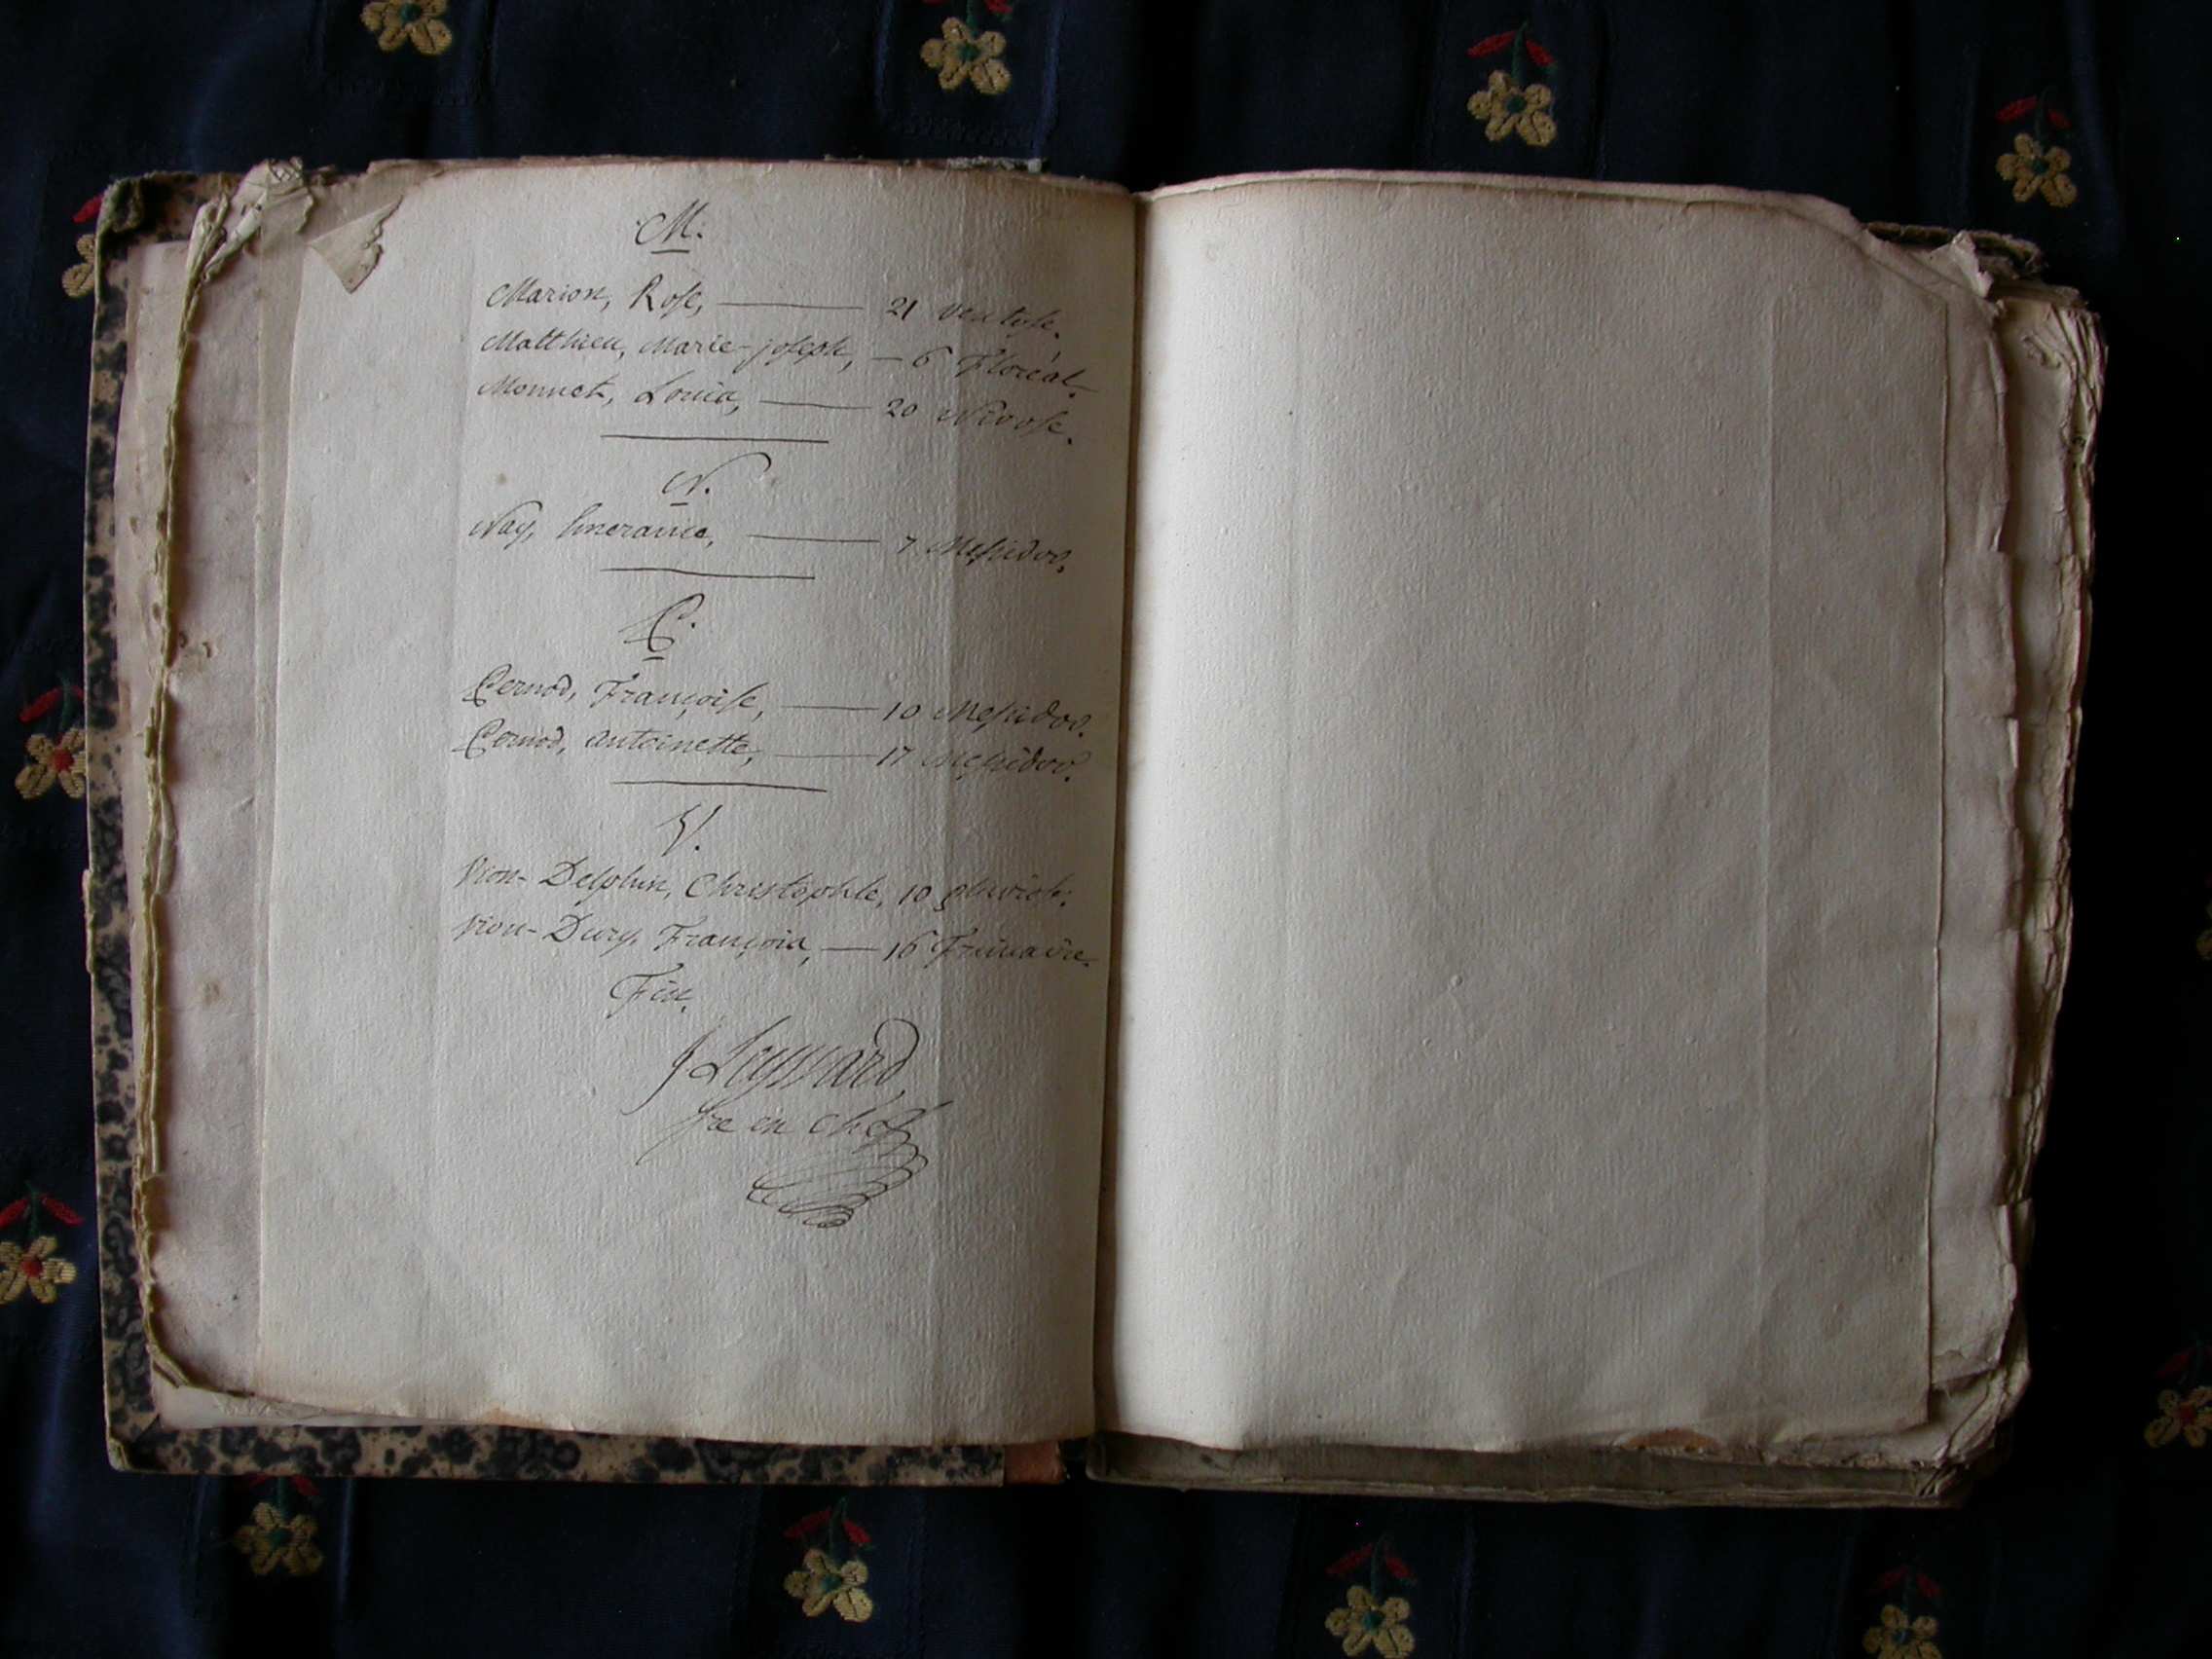 M.
Marion, Rose, — 21 Ventose.
Matthieu, Marie-joseph, — 6 Floréal.
Monnet, Louis, — 20 Nivose.
N.
Nay, — 7 Messidor.
P.
Pernod, Françoise, — 10 Messidor.
Pernod, antoinette, — 17 Messidor.
V.
Vion-Delphin, Christophle, 10 pluviose.
Vion-Dury, François, — 16 Frimaire.
Fin.
en chef